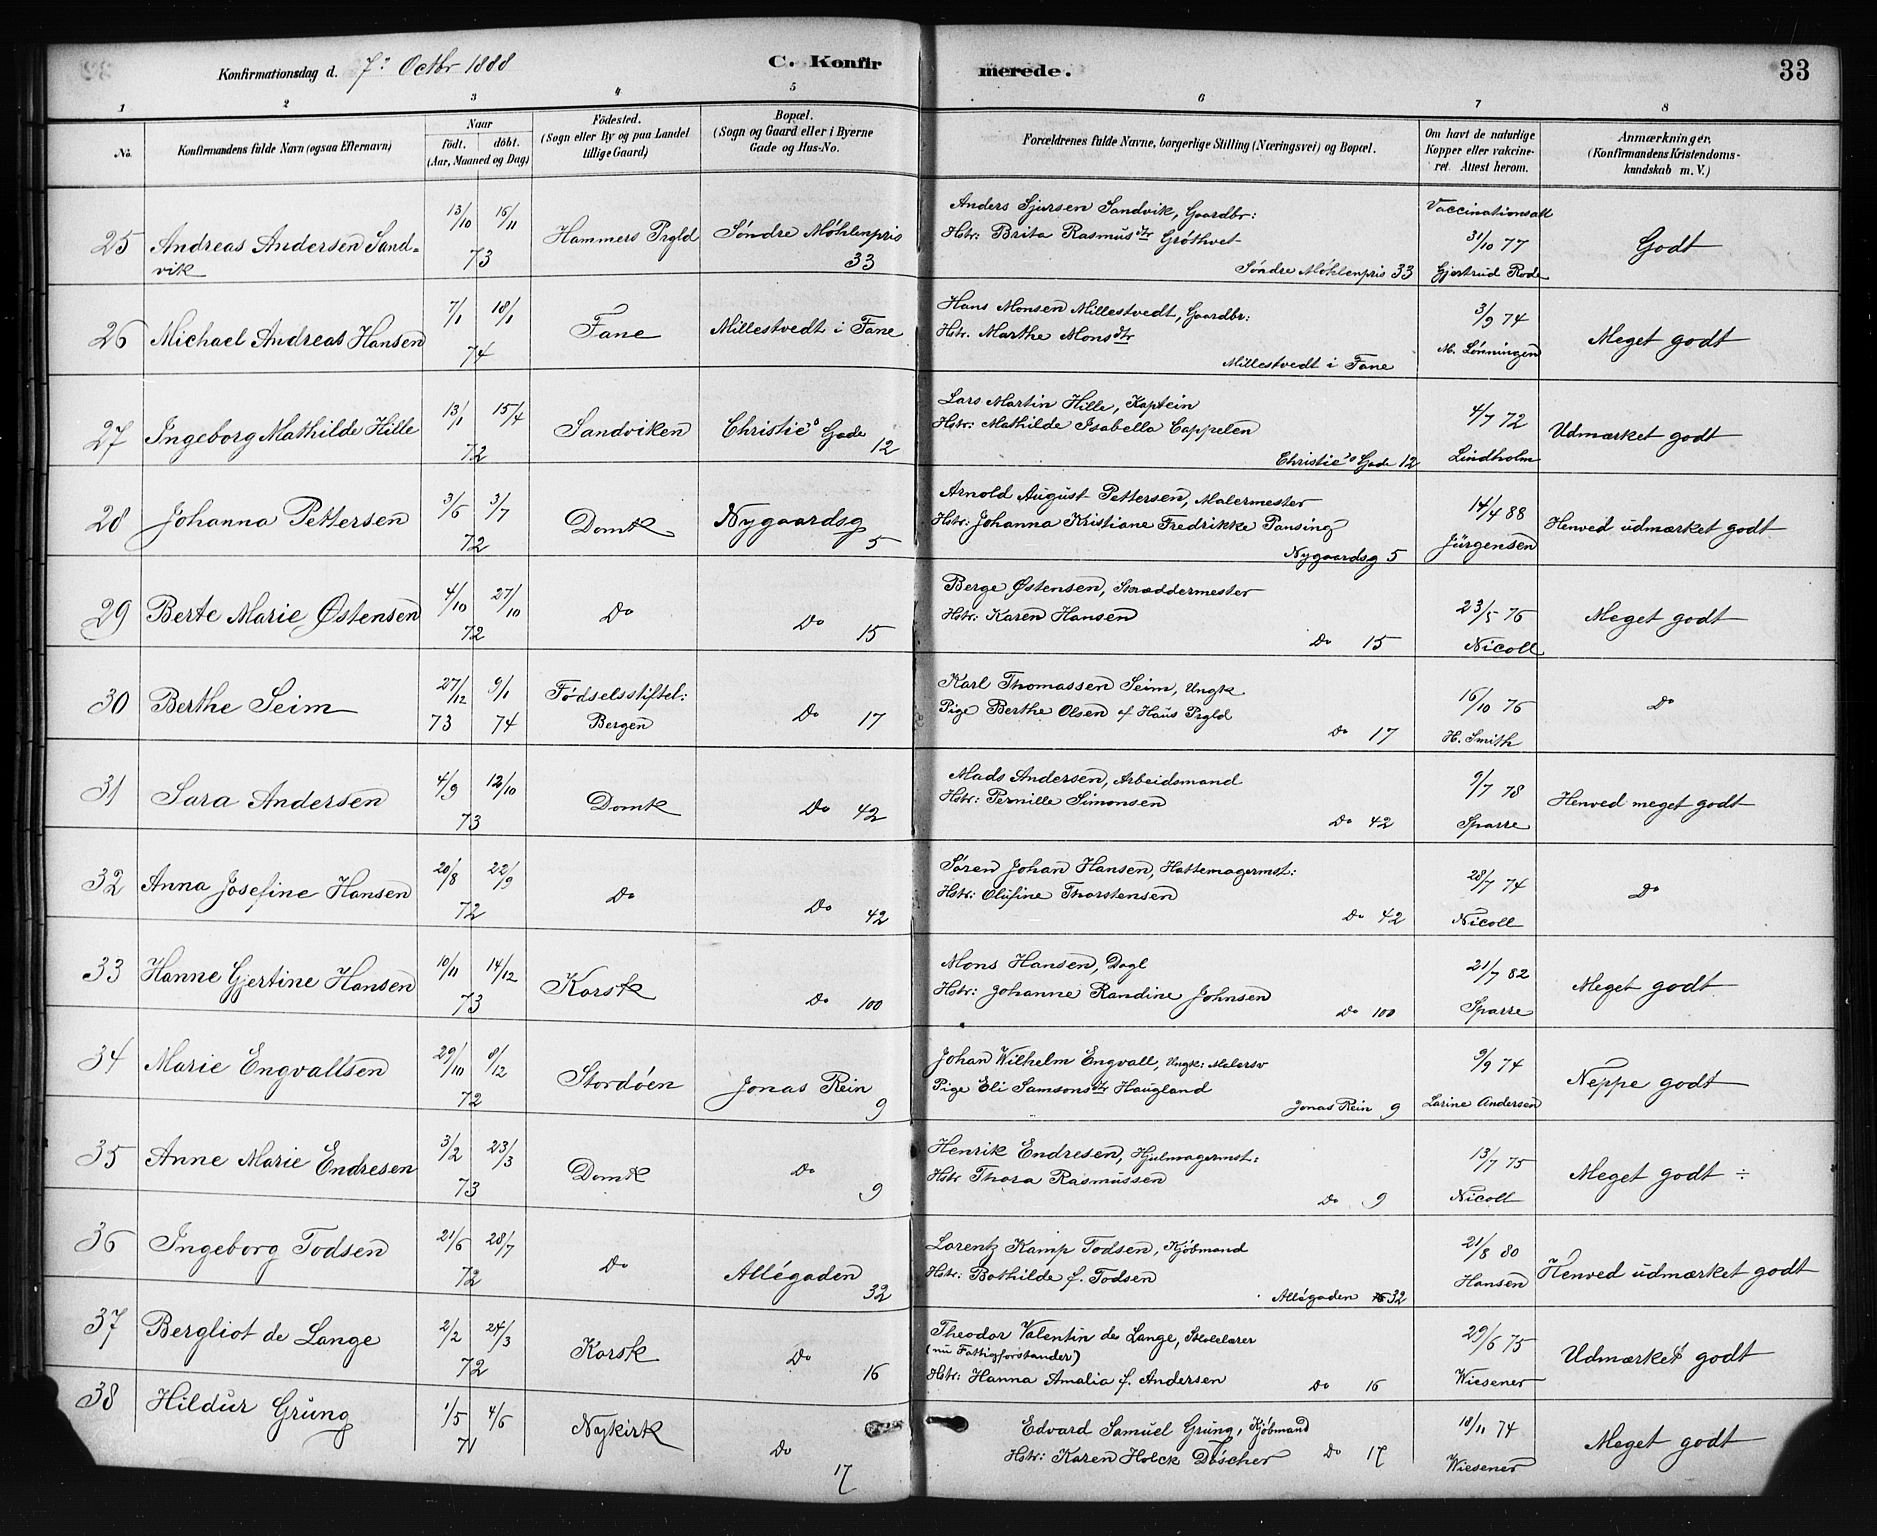 Konfirmationsdag d. 7de Octbr 1888 C. Konfir merede. 33
1 2 3 4 5 6 7 8
No. Konfirmandens fulde Navn (ogsaa Efternavn)
Naar
født. døbt.
(Aar, Maaned og Dag)
Fødested.
(Sogn eller By og paa Landet
tillige Gaard)
Bopæl.
(Sogn og Gaard eller i Byerne
Gade og Hus-No.
Forældrenes fulde Navne, borgerlige Stilling (Næringsvei) og Bopæl.
Om havt de naturlige
Kopper eller vakcine-
ret. Attest herom.
Anmærkninger.
(Konfirmandens Kristendoms-
kundskab m. V.)
25 Andreas Andersen Sand-
vik
13/10 16/11
73
Hammers Prgld
Søndre Møhlenpris
33
Anders Sjursen Sandvik, Gaardbr:
Hstr: Brita Rasmusdtr Grøthvet
Søndre Møhlenpris 33
Vaccinationsatt
31/10 77
Gjertrud Rode
Godt
26 Michael Andreas Hansen
7/1 18/1
74
Fane
Millestvedt i Fane
Hans Monsen Millestvedt, Gaardbr:
Hstr. Marthe Monsdtr
Millestvedt i Fane
3/9 74
M. Lønningen
Meget godt
27 Ingeborg Mathilde Hille
13/1 15/4
72
Sandviken
Christie's Gade
12
Lars Martin Hille, Kaptein
Hstr: Mathilde Isabella Cappelen
Christie's Gade 12
4/7 72
Lindholm
Udmærket godt
28 Johanna Pettersen
3/6 3/7
72
Domk
Nygaardsg
5
Arnold August Pettersen, Malermester
Hstr: Johanna Kristiane Fredrikke Pansing
Nygaardsg 5
14/4 88
Jürgensen
Henved udmærket godt
29 Berte Marie Østensen
4/10 27/10
72
Do
Do 15
Berge Østensen, Skræddermester
Hstr: Karen Hansen
Do 15
23/5 76
Nicoll
Meget godt
30 Berthe Seim
27/12 9/1
73 74
Fødselsstiftel:
Bergen
Do 17
Karl Thomassen Seim, Ungk
Pige Berthe Olsen af Haus Prgld
Do 17
16/10 76
H. Smith
Do
31 Sara Andersen
4/9 12/10
73
Domk
Do 42
Mads Andersen, Arbeidsmand
Hstr: Pernille Simonsen
Do 42
9/7 78
Sparre
Henved meget godt
32 Anna Josefine Hansen
20/8 22/9
72
Do
Do 42
Søren Johan Hansen, Hattemagermst:
Hstr: Olufine Thorstensen
Do 42
28/7 74
Nicoll
Do
33 Hanne Gjertine Hansen
10/11 14/12
73
Korsk
Do 100
Mons Hansen, Dagl
Hstr: Johanne Randine Johnsen
Do 100
21/7 82
Sparre
Meget godt
34 Marie Engvallsen
29/10 8/12
72
Stordøen
Jonas Rein
9
Johan Wilhelm Engvall, Ungk: Malersv
Pige Eli Samsonsdtr Haugland
Jonas Rein 9
9/9 74
Larine Andersen
Neppe godt
35 Anne Marie Endresen
3/2 23/3
73
Domk
Do
9
Henrik Endresen, Hjulmagermst:
Hstr Thora Rasmussen
Do 9
13/7 75
Nicoll
Meget godt ÷
36 Ingeborg Todsen
21/6 28/7
72
Do
Allégaden
32
Lorentz Kamp Todsen, Kjøbmand
Hstr: Bothilde f. Todsen
Allégaden 32
21/8 80
Hansen
Henved udmærket godt
37 Bergliot de Lange
2/2 24/3
72
Korsk
Do
16
Theodor Valentin de Lange, Skolelærer
(nu Fattigforstander)
Hstr: Hanna Amalia f. Andersen
Do 16
29/6 75
Wiesener
Udmærket godt
38 Hildur Grung
1/5 4/6
71
Nykirk
Do
17
Edvard Samuel Grung, Kjøbmand
Hstr: Karen Holck Døscher Do 17
10/11 74
Wiesener
Meget godt